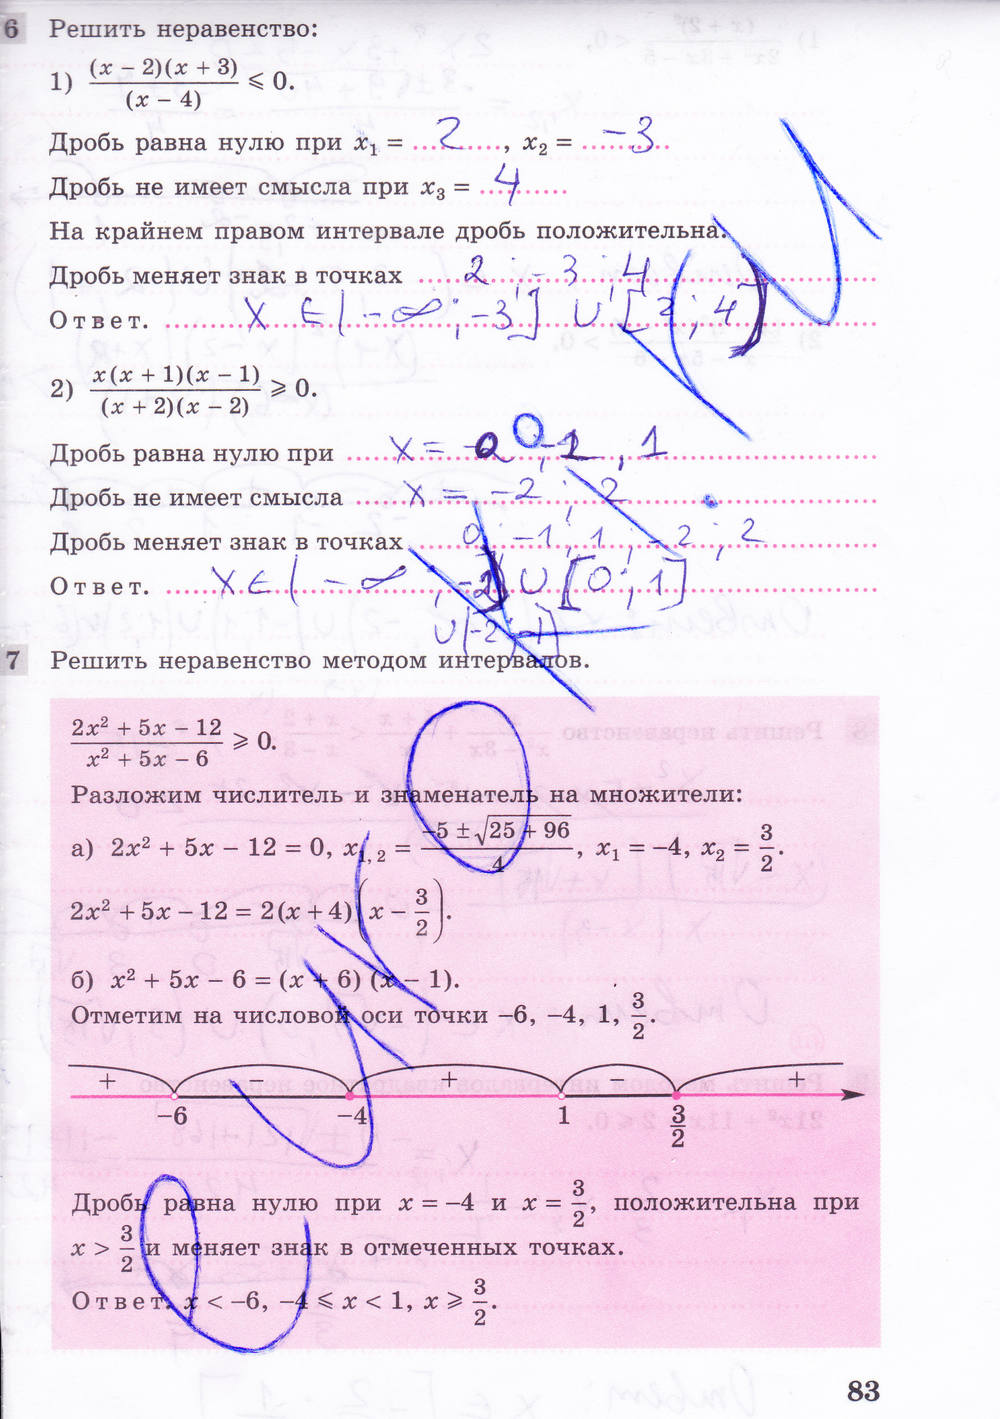 6 Решить неравенство:
1) (x − 2)(x + 3) / (x − 4) ⩽ 0.
Дробь равна нулю при x₁ = 2, x₂ = −3
Дробь не имеет смысла при x₃ = 4
На крайнем правом интервале дробь положительна.
Дробь меняет знак в точках 2 ; −3 ; 4
Ответ. x ∈ (−∞ ; −3] ∪ [2 ; 4)
2) x(x + 1)(x − 1) / (x + 2)(x − 2) ⩾ 0.
Дробь равна нулю при x = 0, −1, 1
Дробь не имеет смысла x = −2 ; 2
Дробь меняет знак в точках 0 ; −1 ; 1 ; −2 ; 2
Ответ. x ∈ (−∞ ; −2) ∪ [0 ; 1]
∪ (−2 ; −1)
7 Решить неравенство методом интервалов.
2x² + 5x − 12 / x² + 5x − 6 ⩾ 0.
Разложим числитель и знаменатель на множители:
а) 2x² + 5x − 12 = 0, x₁,₂ = −5 ± √25 + 96 / 4, x₁ = −4, x₂ = 3/2.
2x² + 5x − 12 = 2(x + 4)(x − 3/2).
б) x² + 5x − 6 = (x + 6) (x − 1).
Отметим на числовой оси точки −6, −4, 1, 3/2.
+ + +
−6 −4 1 3/2
Дробь равна нулю при x = −4 и x = 3/2, положительна при
x > 3/2 и меняет знак в отмеченных точках.
Ответ. x < −6, −4 ⩽ x < 1, x ⩾ 3/2.
83